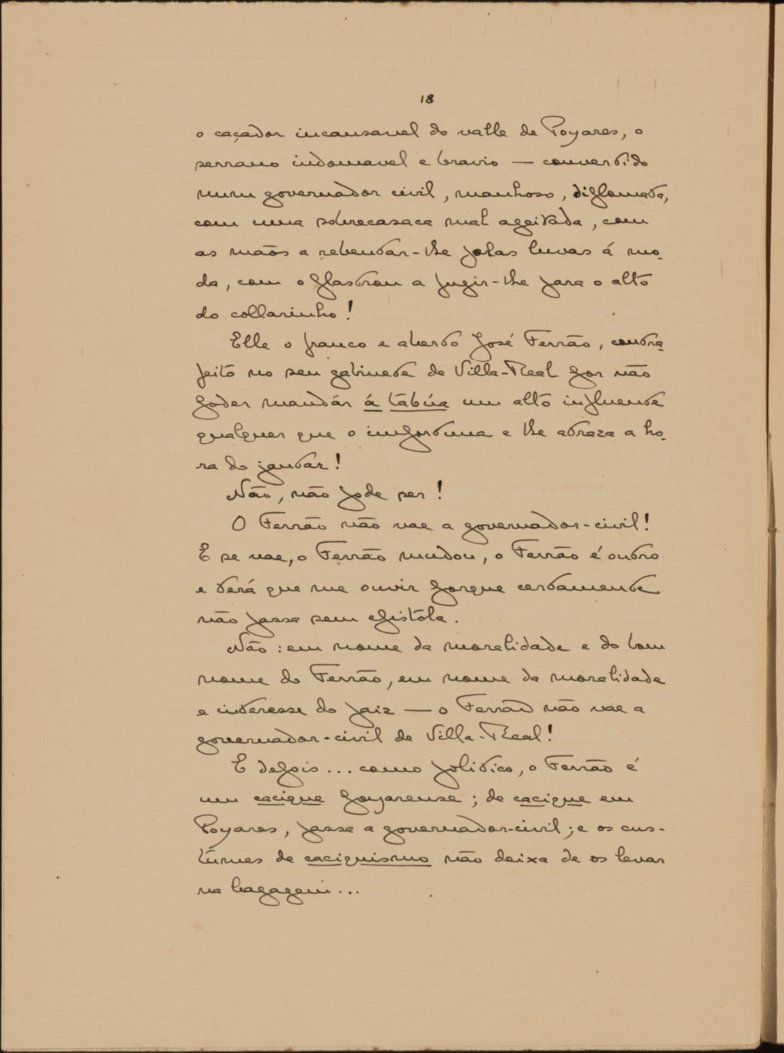 18
o caçador incansavel do valle de Poyares, o
serrano indomavel e bravio — convertido
num governador civil, manhoso, diplomata,
com uma sobrecasaca mal ageitada, com
as mãos a rebentar-lhe pelas luvas á mo-
da, com o plastron a fugir-lhe para o alto
do collarinho!
Elle o franco e aberto José Ferrão, contra-
feito no seu gabinete de Villa-Real por não
poder mandár á tabúa um alto influente
qualquer que o importuna e lhe atraza a ho-
ra do jantar!
Não, não pode ser!
O Ferrão não vae a governador-civil!
E se vae, o Ferrão mudou, o Ferrão é outro
e terá que me ouvir porque certamente
não passa sem epistola.
Não: em nome da moralidade e do bom
nome do Ferrão, em nome da moralidade
e interesse do paiz — o Ferrão não vae a
governador-civil de Villa-Real!
E depois... como politico, o Ferrão é
um cacique poyarense; de cacique em
Poyares, passa a governador-civil; e os cus-
tumes de caciquismo não deixa de os levar
na bagagem...